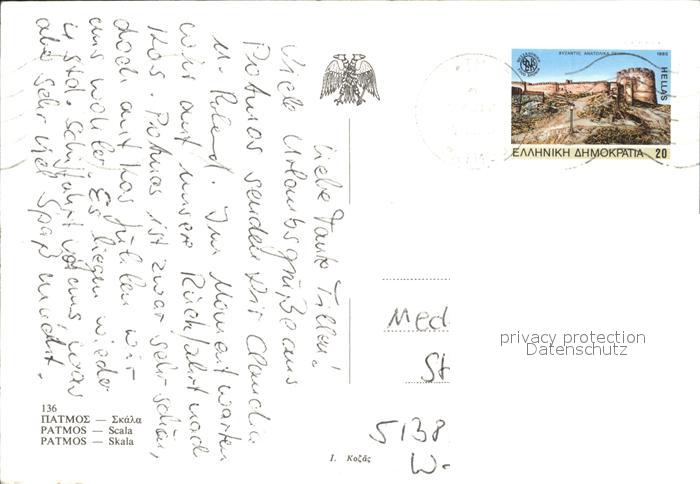 Liebe Tante Tillen!
Viele Urlaubsgrüße aus
Patmos senden Dir Claudia
u. Roland. Im Moment warten
wir auf unsere Rückfahrt nach
Kos. Patmos ist zwar sehr schön,
doch auf Kos fühlen wir
uns wohler. Es liegen wieder
4 Std. Schiffahrt vor uns, was
aber sehr viel Spaß macht.
ΒΥΖΑΝΤΙΣ ΑΝΑΤΟΛΙΚΑ ΤΕΙΧΗ 1985
HELLAS
ΕΛΛΗΝΙΚΗ ΔΗΜΟΚΡΑΤΙΑ 20
Mech
St
5138
W-
privacy protection
Datenschutz
136
ΠΑΤΜΟΣ — Σκάλα
PATMOS — Scala
PATMOS — Skala
Ι. Κοζάς